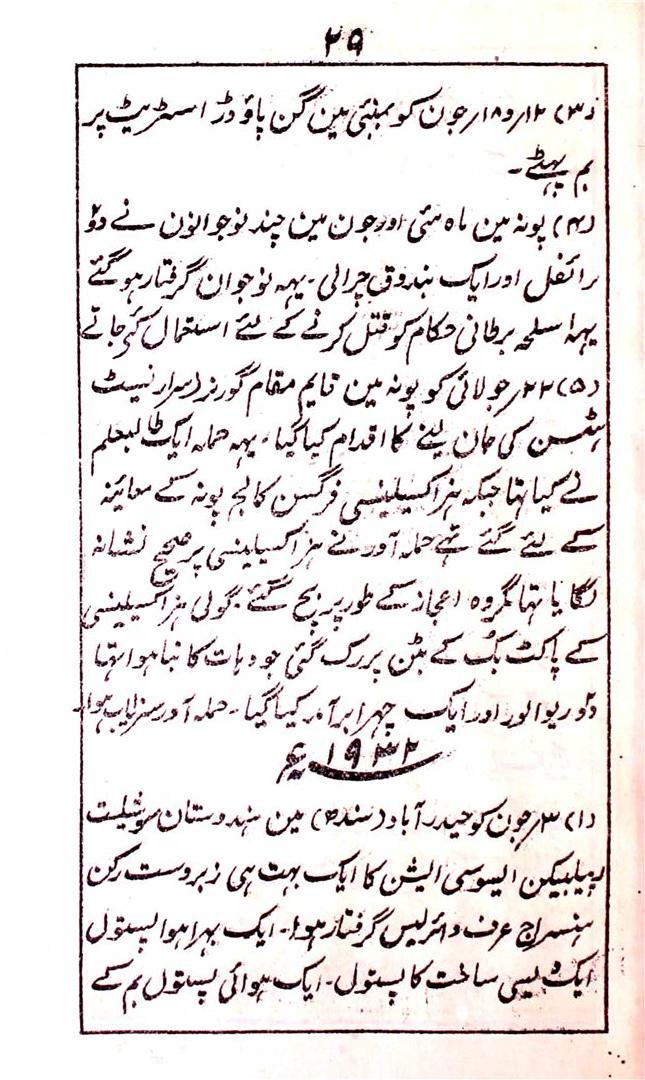 ۲۹
(۳) ۱۲؍و۱۸؍جون کو بمبئی مین گن پاؤڈر اسٹریٹ پر
بم پہٹے۔
(۴) پونہ مین ماہ مئی اورجون مین چند نوجوانون نے دو
رائفل اورایک بندوق چرالی۔یہہ نوجوان گرفتار ہوگئے
یہہ اسلحہ برطانی حکام کو قتل کرنے کے لئے استعمال کئے جاتے
(۵) ۲۲؍جولائی کو پونہ مین قایم مقام گورنر (سرارنیسٹ
ہٹسن کی جان لینے کا اقدام کیا گیا۔ یہہ حملہ ایک طالبعلم
نے کیا تہا جبکہ ہزاکسیلینسی فرگسن کالج پونہ کے معاینہ
کے لئے گئے تہے حملہ آور نے ہزاکسیلینسی پر صحیح نشانہ
لگایا تہا مگر وہ اعجاز کے طور پر بچ گئے۔ گولی ہزاکسیلینسی
کے پاکٹ بک کے بٹن پر رک گئی جو دہات کا بنا ہوا تہا
دو ریوالور اور ایک چہرا برآمد کیا گیا۔ حملہ آور سزایاب ہوا۔
۱۹۳۲ء
(۱) ۳؍جون کو حیدرآباد (سندھ) مین ہندوستان سوشیلسٹ
ریپبلیکن ایسوسی ایشن کا ایک بہت ہی زبردست رکن
ہنسراج عرف وائرلیس گرفتار ہوا۔ ایک بہرا ہوا پستول
ایک دیسی ساخت کا پستول۔ ایک ہوائی پستول بم کے